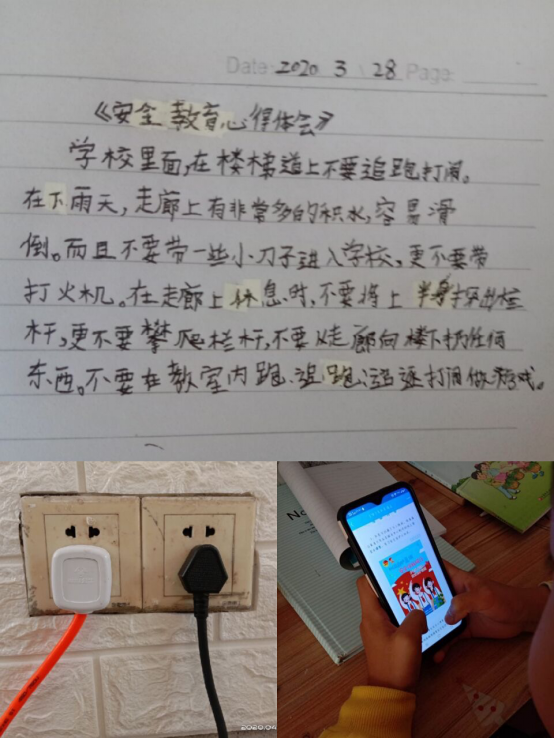 Date: 2020 3 28 Page:
《安全教育心得体会》
学校里面,在楼梯道上不要追跑打闹。
在下雨天,走廊上有非常多的积水,容易滑
倒。而且不要带一些小刀子进入学校,更不要带
打火机。在走廊上休息时,不要将上半身探出栏
杆,更不要攀爬栏杆,不要从走廊向楼下扔任何
东西。不要在教室内跑、追跑追逐打闹做游戏。
2020.04